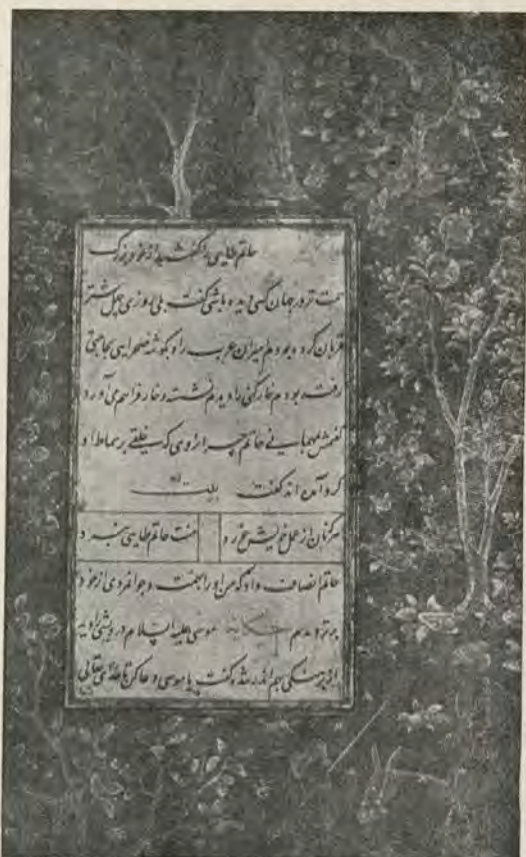 حاتم طایی را گفتند از خود بزرگ
همت تر در جهان کسی دیده باشی گفت بلی روزی چهل شتر
قربان کرده بودم امیران عرب را و بگوشه صحرایی بحاجتی
رفته بودم خارکنی را دیدم نشسته و خار فراهم می آورد
گفتمش بمهمانی حاتم چرا نروی که خلقی بر سماط او
گرد آمده اند گفت بیت
هرکه نان از عمل خویش خورد منت حاتم طایی نبرد
حاتم انصاف دادم که من او را بهمت و جوانمردی از خود
برتر دیدم حکایت موسی علیه السلام درویشی را دید
از برهنگی بریگ اندر شده گفت یا موسی دعا کن تا خدای تعالی